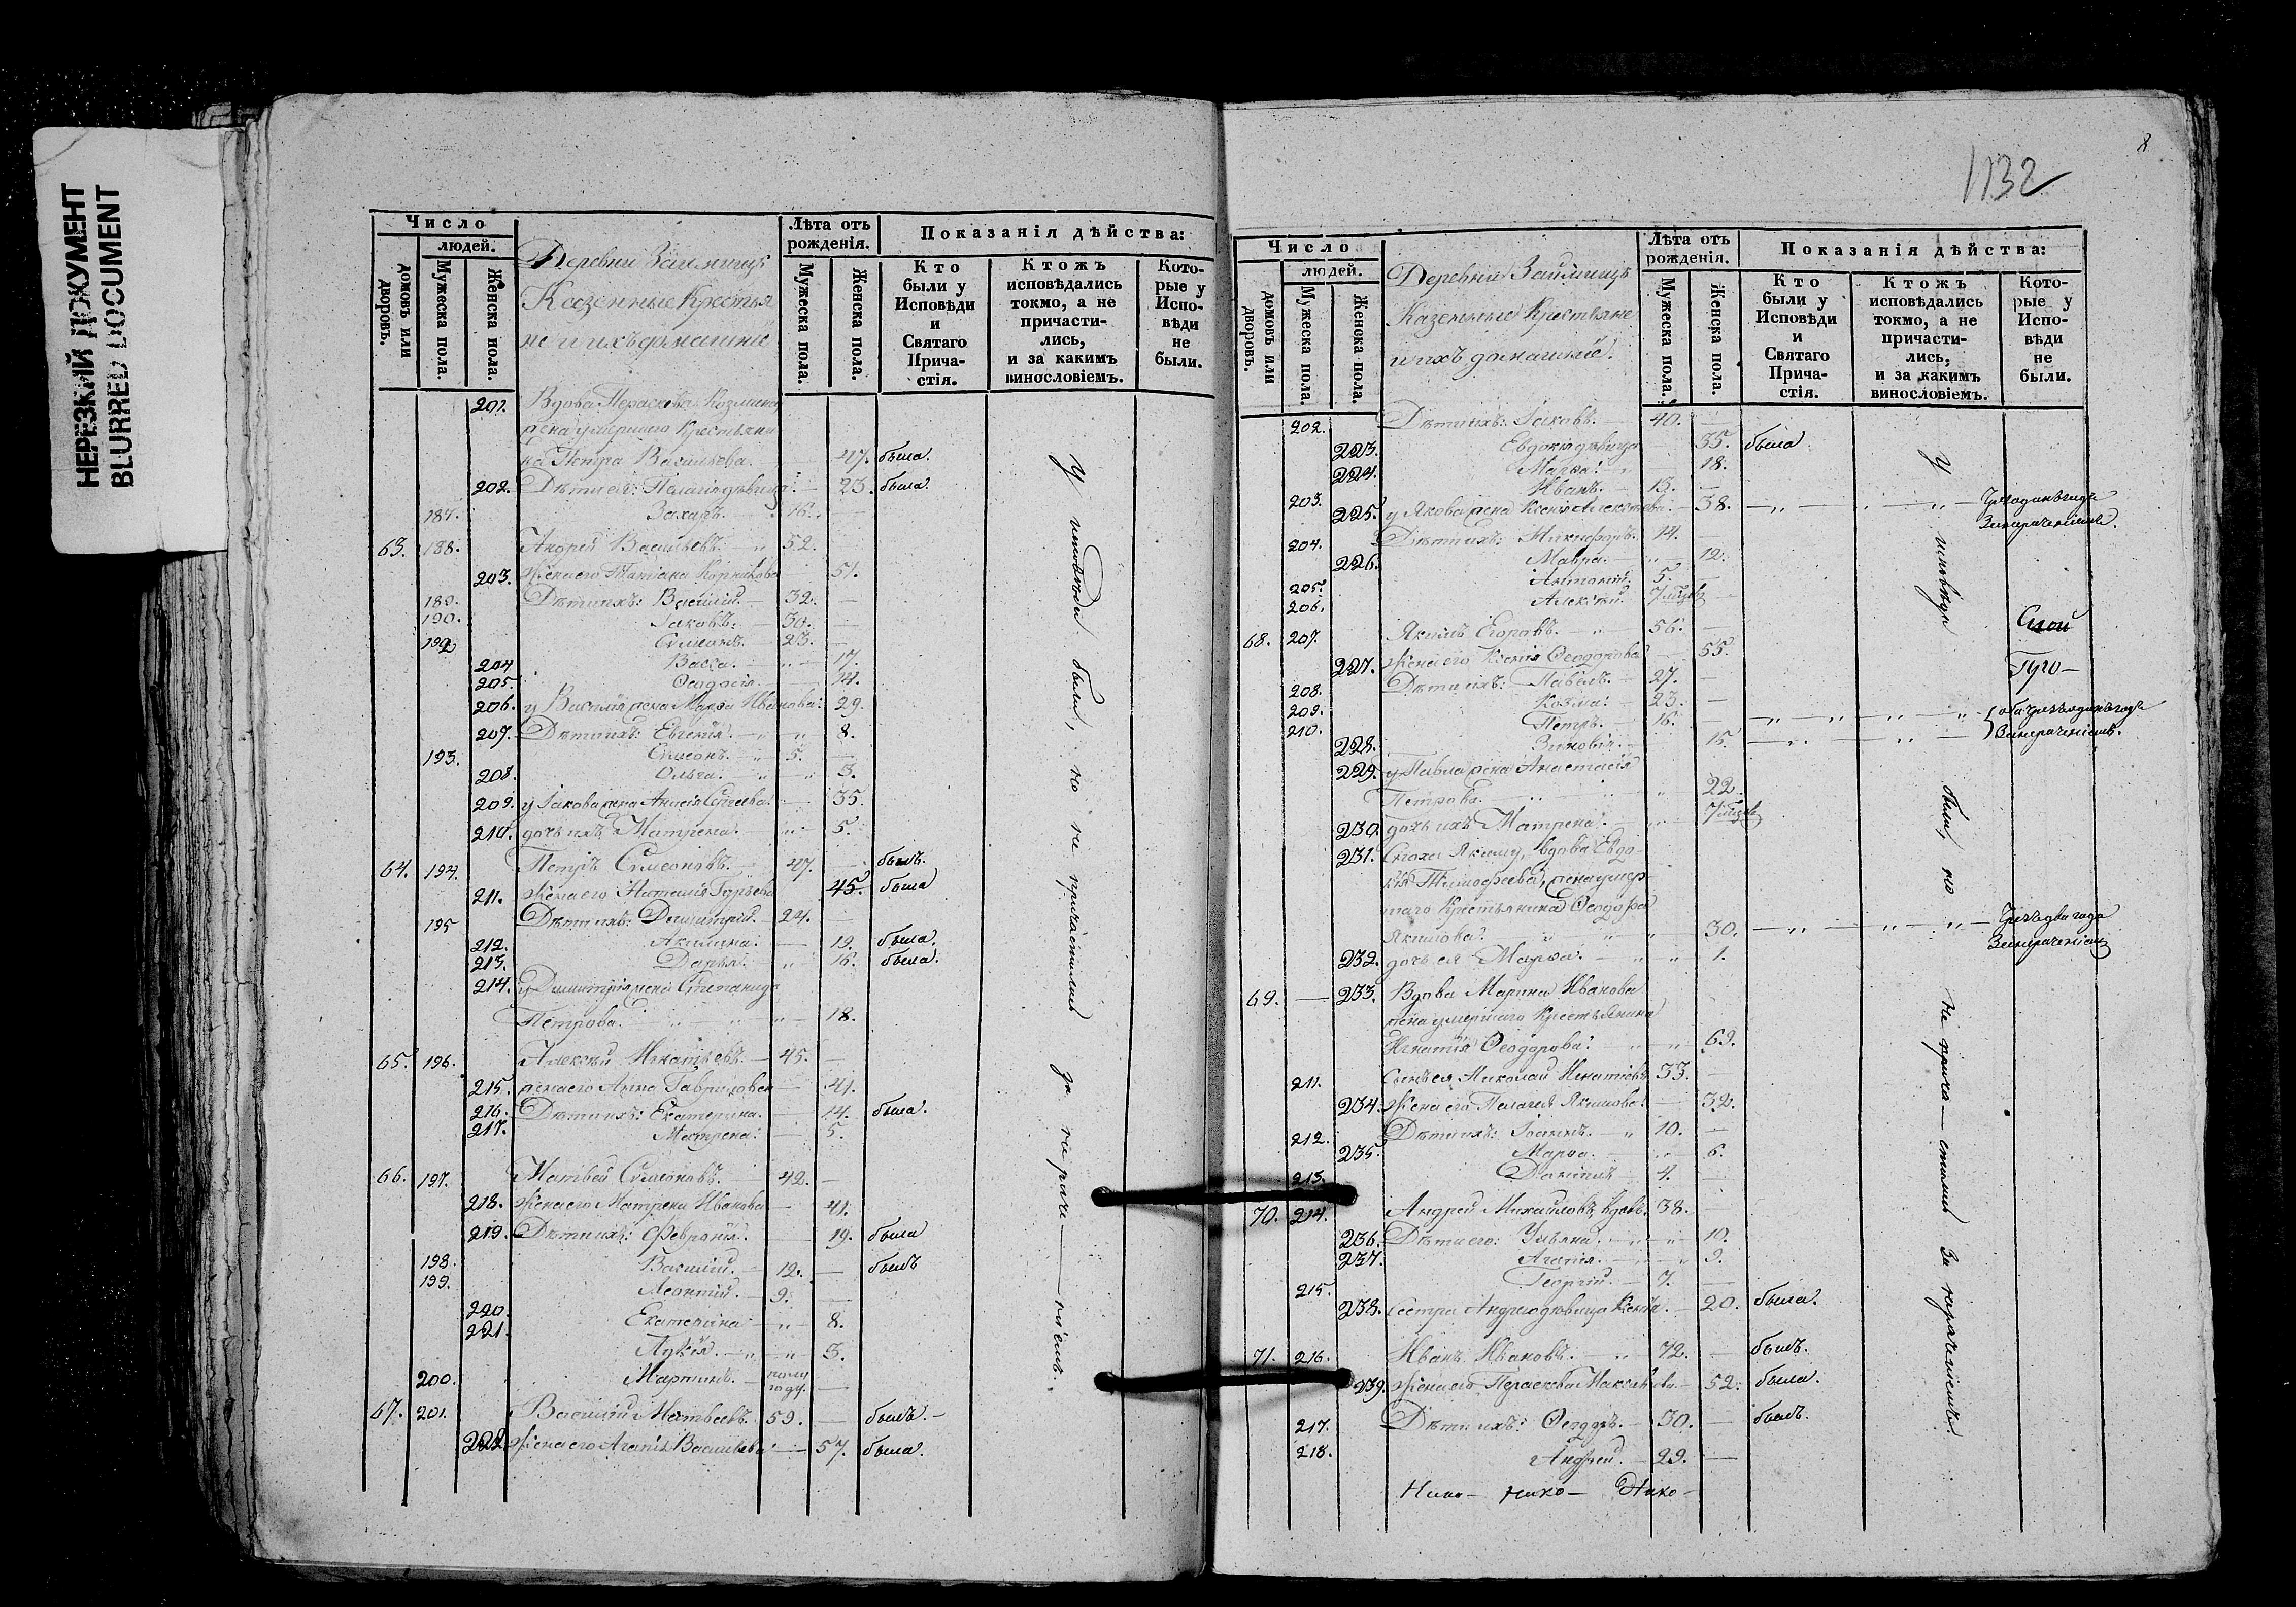 НЕРЕЗКИЙ ДОКУМЕНТ
BLURRED DOCUMENT
Число
людей.
домовъ или дворовъ.
Мужеска пола.
Женска пола.
Деревни Займищъ
Казенные Крестья
не и ихъ домашніе
Лѣта отъ рожденія.
Мужеска пола.
Женска пола.
Показанія дѣйства:
Кто были у Исповѣди и Святаго Прича-стія.
Ктожъ исповѣдались токмо, а не причасти-лись, и за какимъ винословіемъ.
Кото-рые у Испо-вѣди не были.
201. Вдова Параскева Козмина
жена умершаго Крестьяни
на Петра Васильева. 47. была.
202. Дѣти ея: Пелагія девица 23. была.
187. Захаръ. 16.
63. 188. Андрей Васильевъ. 52.
203. Жена его Татіана Корнилова 51.
Дѣти ихъ: Василій. 32.
190. Іаковъ. 30.
Симеонъ. 23.
204 Васса. 17.
205. Ѳеодосія. 14.
206. у Василія жена Марѳа Иванова. 29.
207. Дѣти ихъ: Евгенія. 8.
193. Симеонъ. 5.
208. Ольга. 3.
209. у Іакова жена Анисія Сергеева. 35.
210. дочь ихъ Матрена. 5.
64. 194. Петръ Симеоновъ. 47. былъ.
211. Жена его Наталія 45. была
195 Дѣти ихъ: Димитрій. 24.
212. Акилина. 19. была.
213. Дарья. 16. была.
214. у Димитрія жена Степанида
Петрова. 18.
65. 196. Алексѣй Игнатьевъ. 45.
215. жена его Анна Гаврилова 41.
216. Дѣти ихъ: Екатерина. 14. была.
217. Матрена. 5.
66. 197. Матвей Симеоновъ. 42.
218. Жена его Матрена Иванова 41.
219. Дѣти ихъ: Февронія. 19. была
198. Василій. 12. былъ
199. Леонтій. 9.
220. Екатерина 8.
221. Лукія. 3.
200. Мартинъ. полу году.
67. 201. Василій Матвеевъ. 59. былъ.
222. Жена его Агапія Васильева 57. была.
У исповѣди были, но не причастились за нерачи — тіемъ.
8
1132
Число
людей.
домовъ или дворовъ.
Мужеска пола.
Женска пола.
Деревни Займищъ
Казенные Крестьяне
и ихъ домашніе.
Лѣта отъ рожденія.
Мужеска пола.
Женска пола.
Показанія дѣйства:
Кто были у Исповѣди и Святаго Прича-стія.
Ктожъ исповѣдались токмо, а не причасти-лись, и за какимъ винословіемъ.
Кото-рые у Испо-вѣди не были.
202. Дѣти ихъ: Іаковъ. 40.
223. Евдокія девица 35. была
224. Марѳа. 18.
203. Иванъ. 13.
225. у Якова жена Ксенія Алексѣева. 38.
204. Дѣти ихъ: Никифоръ. 14.
226. Мавра. 12.
205. Антоній. 5.
206. Алексѣй. 7 мѣсяц
68. 207. Якимъ Егоровъ. 56.
227. Жена его Ксенія Ѳеодорова 55.
208. Дѣти ихъ: Павелъ. 27.
209. Козма. 23.
210. Петръ. 16.
228. Зиновія. 15.
229. у Павла жена Анастасія
Петрова. 22.
230. дочь ихъ Матрена. 7 мѣсяц
231. Сноха Якиму, вдова Евдо
кія Тимофеева, жена умер
шаго Крестьянина Ѳеодора
Якимова. 30. Чрезъ два года
232. дочь ея Марѳа. 1.
69. 233. Вдова Марина Иванова
жена умершаго Крестьянина
Игнатія Ѳеодорова. 69.
211. Сынъ ея Николай Игнатіевъ 33.
234. Жена его Пелагея Якимова. 32.
212. Дѣти ихъ: Іоаннъ. 10.
235. Марѳа. 6.
213. Даніилъ 4.
70. 214. Андрей Михайловъ, вдовъ. 38.
236. Дѣти его: Ульяна. 10.
237. Агапія. 9.
215. Георгій. 7.
238. Сестра Андрею девица Ксенія. 20. была.
71. 216. Иванъ Ивановъ. 72. былъ.
239. Жена его Параскева Максимова 52. была.
217. Дѣти ихъ: Ѳеодоръ. 30. былъ.
218. Андрей. 29.
У исповѣди были, но не прича — стились за нерачітемъ.